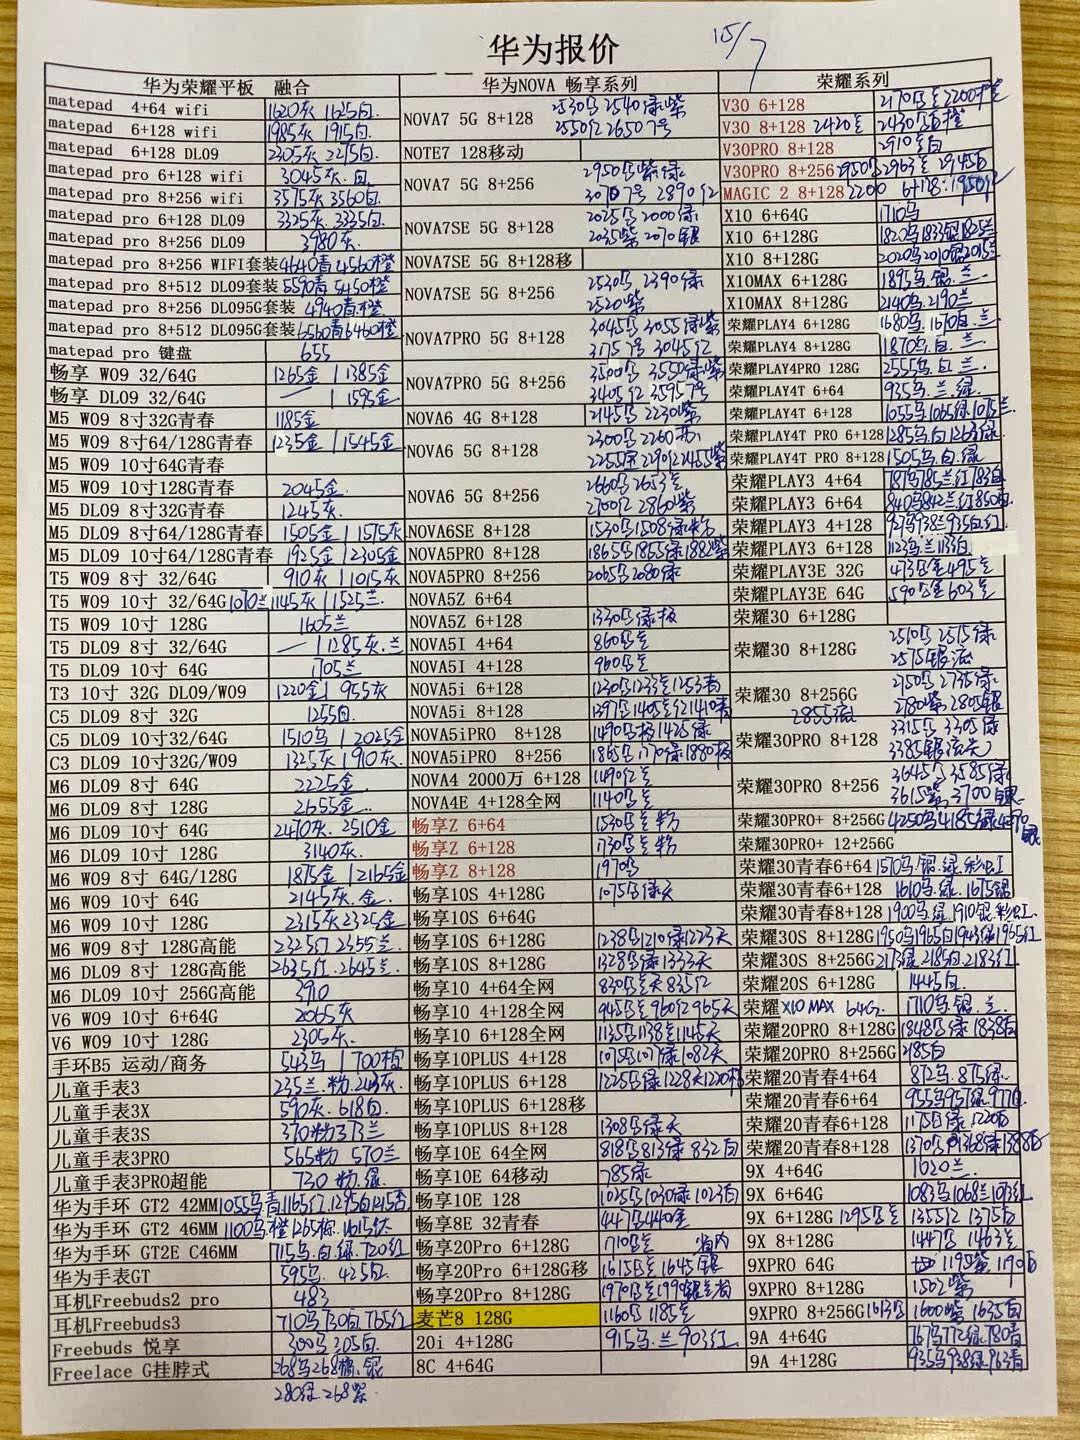 华为报价
15/7
华为荣耀平板 融合
matepad 4+64 wifi 1620灰 1625白.
matepad 6+128 wifi 1985灰 1915白.
matepad 6+128 DL09 2305灰 2275白.
matepad pro 6+128 wifi 3045灰.白.
matepad pro 8+256 wifi 3575灰 3560白.
matepad pro 6+128 DL09 3325灰 3335白.
matepad pro 8+256 DL09 3980灰.
matepad pro 8+256 WIFI套装 4640青 4560橙
matepad pro 8+512 DL09套装 5590青 5450橙
matepad pro 8+256 DL095G套装 4940青.橙
matepad pro 8+512 DL095G套装 6560青 6460橙
matepad pro 键盘 655
畅享 W09 32/64G 1265金 | 1385金
畅享 DL09 32/64G — | 1595金
M5 W09 8寸32G青春 1185金
M5 W09 8寸64/128G青春 1235金 | 1545金
M5 W09 10寸64G青春
M5 W09 10寸128G青春 2045金.
M5 DL09 8寸32G青春 1245灰.
M5 DL09 8寸64/128G青春 1505金 | 1575灰
M5 DL09 10寸64/128G青春 1925金 | 2305金
T5 W09 8寸 32/64G 910灰 | 1015灰
T5 W09 10寸 32/64G 1070兰 1145灰 | 1525兰.
T5 W09 10寸 128G 1605兰
T5 DL09 8寸 32/64G — | 1285灰.兰
T5 DL09 10寸 64G 1705兰
T3 10寸 32G DL09/W09 1220金 | 955灰
C5 DL09 8寸 32G 1255白.
C5 DL09 10寸32/64G 1510乌 | 2025金
C3 DL09 10寸32G/W09 1325灰 | 910灰.
M6 DL09 8寸 64G 2225金.
M6 DL09 8寸 128G 2655金.
M6 DL09 10寸 64G 2470灰. 2510金
M6 DL09 10寸 128G 3140灰.
M6 W09 8寸 64G/128G 1875金 | 2165金
M6 W09 10寸 64G 2145灰.金.
M6 W09 10寸 128G 2315灰 2325金
M6 W09 8寸 128G高能 2325红 2355兰.
M6 DL09 8寸 128G高能 2635红.2645兰.
M6 DL09 10寸 256G高能 390
V6 W09 10寸 6+64G 2065灰
V6 W09 10寸 128G 2305灰.
手环B5 运动/商务 543乌 | 700
儿童手表3 235兰.粉.
儿童手表3X 590灰.618白.
儿童手表3S 370粉 373兰
儿童手表3PRO 565粉 570兰
儿童手表3PRO超能 730 粉.绿.
华为手环 GT2 42MM 1055乌青
华为手环 GT2 46MM 1100乌.橙
华为手环 GT2E C46MM 715乌.白.绿.720红
华为手表GT 595乌. 425白.
耳机Freebuds2 pro 483
耳机Freebuds3 710乌 730白 765红
Freebuds 悦享 300乌 305白.
Freelace G挂脖式 268乌 268橘.银
280绿.268紫.
华为NOVA 畅享系列
NOVA7 5G 8+128 2530乌 2540绿紫
2550红 2650 7号
NOTE7 128移动
NOVA7 5G 8+256 2950乌紫绿
3070 7号 2890红
NOVA7SE 5G 8+128 2025乌 2000绿
2035紫 2070银
NOVA7SE 5G 8+128移
NOVA7SE 5G 8+256 2530乌 2390绿
2520紫
NOVA7PRO 5G 8+128 3045乌 3055绿紫
3175 7号 3045红
NOVA7PRO 5G 8+256 3500乌 3550绿紫
3405红 3595 7号
NOVA6 4G 8+128 2145乌 2230紫
NOVA6 5G 8+128 2300乌
NOVA6 5G 8+256
2700红 2860紫
NOVA6SE 8+128 1530乌1508绿粉
NOVA5PRO 8+128 1865乌1855绿1882紫
NOVA5PRO 8+256 2065乌2080绿
NOVA5Z 6+64
NOVA5Z 6+128 1330乌绿极
NOVA5I 4+64 860乌兰
NOVA5I 4+128 960乌兰
NOVA5i 6+128 1230乌1233兰1253青
NOVA5i 8+128
NOVA5iPRO 8+128 1490乌极1425绿
NOVA5iPRO 8+256
NOVA4 2000万 6+128 1490红兰
NOVA4E 4+128全网 1140乌兰
畅享Z 6+64 1530乌兰粉
畅享Z 6+128 1730乌兰粉
畅享Z 8+128 1970乌
畅享10S 4+128G 1075乌绿天
畅享10S 6+64G
畅享10S 6+128G 1238乌1210绿1223天
畅享10S 8+128G 1328乌绿1333天
畅享10 4+64全网 830乌兰天 835红
畅享10 4+128全网 945乌兰960红965天
畅享10 6+128全网 1135乌1138兰1145天
畅享10PLUS 4+128 1075乌1077绿1082天
畅享10PLUS 6+128 1225乌绿1228天1220
畅享10PLUS 6+128移
畅享10PLUS 8+128 1308乌绿天
畅享10E 64全网 818乌813绿 832白
畅享10E 64移动 785绿
畅享10E 128 1025乌1030绿1023白
畅享8E 32青春 447乌440金
畅享20Pro 6+128G 1710乌兰 省内
畅享20Pro 6+128G移 1615乌兰1645银
畅享20Pro 8+128G 1970乌兰1990银
麦芒8 128G 1160乌1185兰
20i 4+128G 915乌.兰903红
8C 4+64G
荣耀系列
V30 6+128
V30 8+128 2420兰 2430乌
V30PRO 8+128 2910兰白
V30PRO 8+256 2950乌 2963兰 2945白
MAGIC 2 8+128 2200 6+128:1950红
X10 6+64G 1710乌
X10 6+128G 1820乌1833银1825兰
X10 8+128G 2020乌2010银2015兰
X10MAX 6+128G 1895乌.银.兰.
X10MAX 8+128G 2140乌.2190兰
荣耀PLAY4 6+128G 1680乌.1670白.兰
荣耀PLAY4 8+128G 1870乌.白.兰.
荣耀PLAY4PRO 128G 2555乌.红.兰
荣耀PLAY4T 6+64 935乌.兰.绿.
荣耀PLAY4T 6+128 1055乌1065绿1075兰.
荣耀PLAY4T PRO 6+128 1285乌.白1263绿.
荣耀PLAY4T PRO 8+128 1505乌.白.绿
荣耀PLAY3 4+64 787乌785兰红783白
荣耀PLAY3 6+64 840乌842兰红850白.
荣耀PLAY3 4+128 927乌938兰935白红
荣耀PLAY3 6+128 1123乌.兰1133白
荣耀PLAY3E 32G 473乌金495兰
荣耀PLAY3E 64G 590乌金603兰
荣耀30 6+128G
荣耀30 8+128G 2510乌 2515绿
2575银
荣耀30 8+256G 2750乌 2735绿
2855 2780紫 2805银
荣耀30PRO 8+128 3315乌 3305绿
3385银
荣耀30PRO 8+256 3645乌 3585绿
3615紫 3700银
荣耀30PRO+ 8+256G 4250乌4185绿
荣耀30PRO+ 12+256G
荣耀30青春6+64 1570乌.银.绿.彩虹
荣耀30青春6+128 1610乌.绿.1675银
荣耀30青春8+128 1900乌.绿.1910银.彩虹.
荣耀30S 8+128G 1950乌1965白1943绿1965红
荣耀30S 8+256G 2173绿.2185白.2183红
荣耀20S 6+128G 1445白.
荣耀X10 MAX 64G. 1710乌.银.兰.
荣耀20PRO 8+128G 1848乌绿 1838白
荣耀20PRO 8+256G 2185白
荣耀20青春4+64 872乌.875绿.
荣耀20青春6+64 955乌957绿.977白.
荣耀20青春6+128 1175乌绿.1220白
荣耀20青春8+128
9X 4+64G 1020兰.
9X 6+64G 1083乌1068兰1073红
9X 6+128G 1295乌兰 1355红 1375白
9X 8+128G 1447乌 1463兰
9XPRO 64G 1195紫 1190白
9XPRO 8+128G 1502紫
9XPRO 8+256G 1613乌 1600紫 1635白
9A 4+64G 767乌772绿780青
9A 4+128G 935乌938绿963青